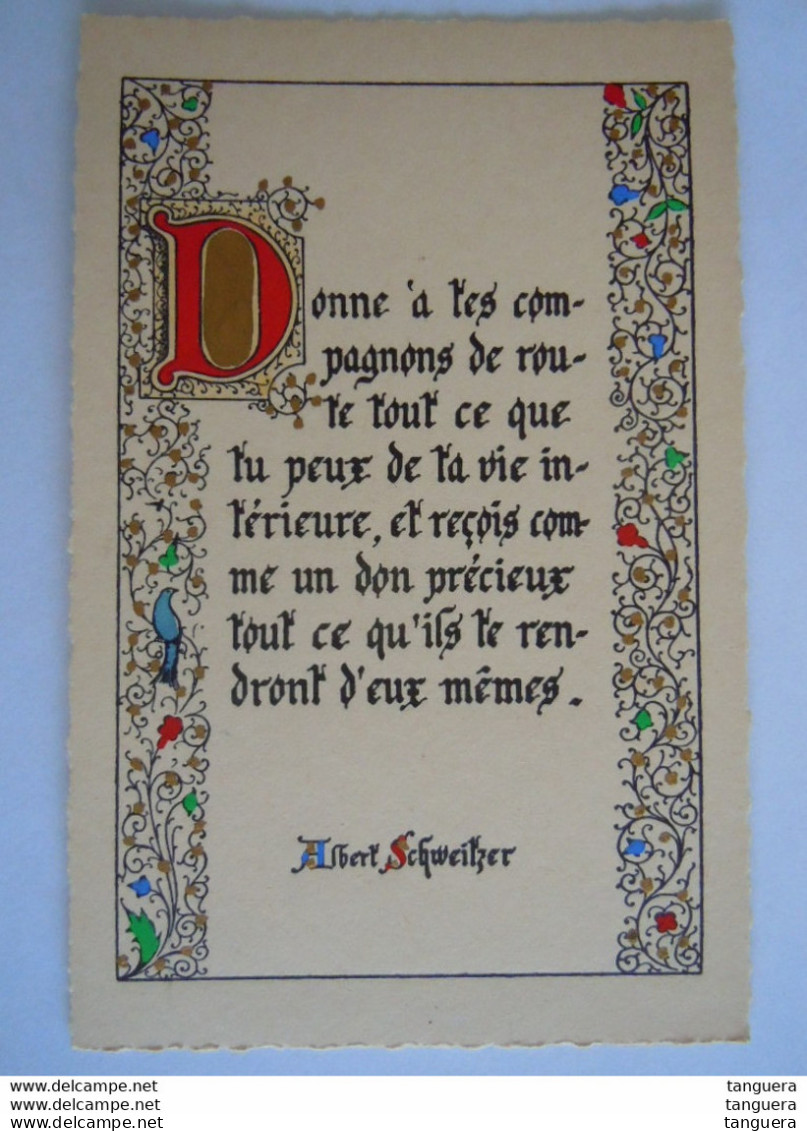 Donne 'a tes com-
pagnons de rou-
te tout ce que
tu peux de ta vie in-
térieure, et reçois com-
me un don précieux
tout ce qu'ils te ren-
dront d'eux mêmes.
Albert Schweitzer
www.delcampe.net tanguera
www.delcampe.net tanguera
www.delcampe.net tanguera